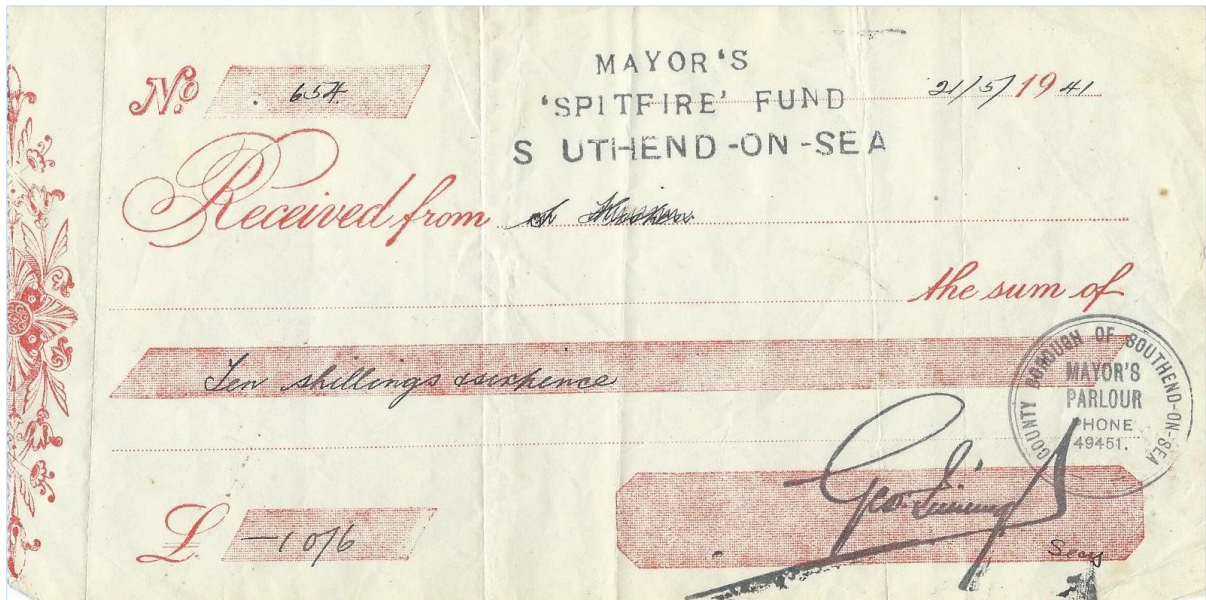 MAYOR'S
No 654 'SPITFIRE' FUND 21/5/1941
S UTHEND-ON-SEA
Received from
the sum of
Ten shillings & sixpence
COUNTY BOROUGH OF SOUTHEND-ON-SEA
MAYOR'S
PARLOUR
PHONE
49451.
£ -10/6
Secy